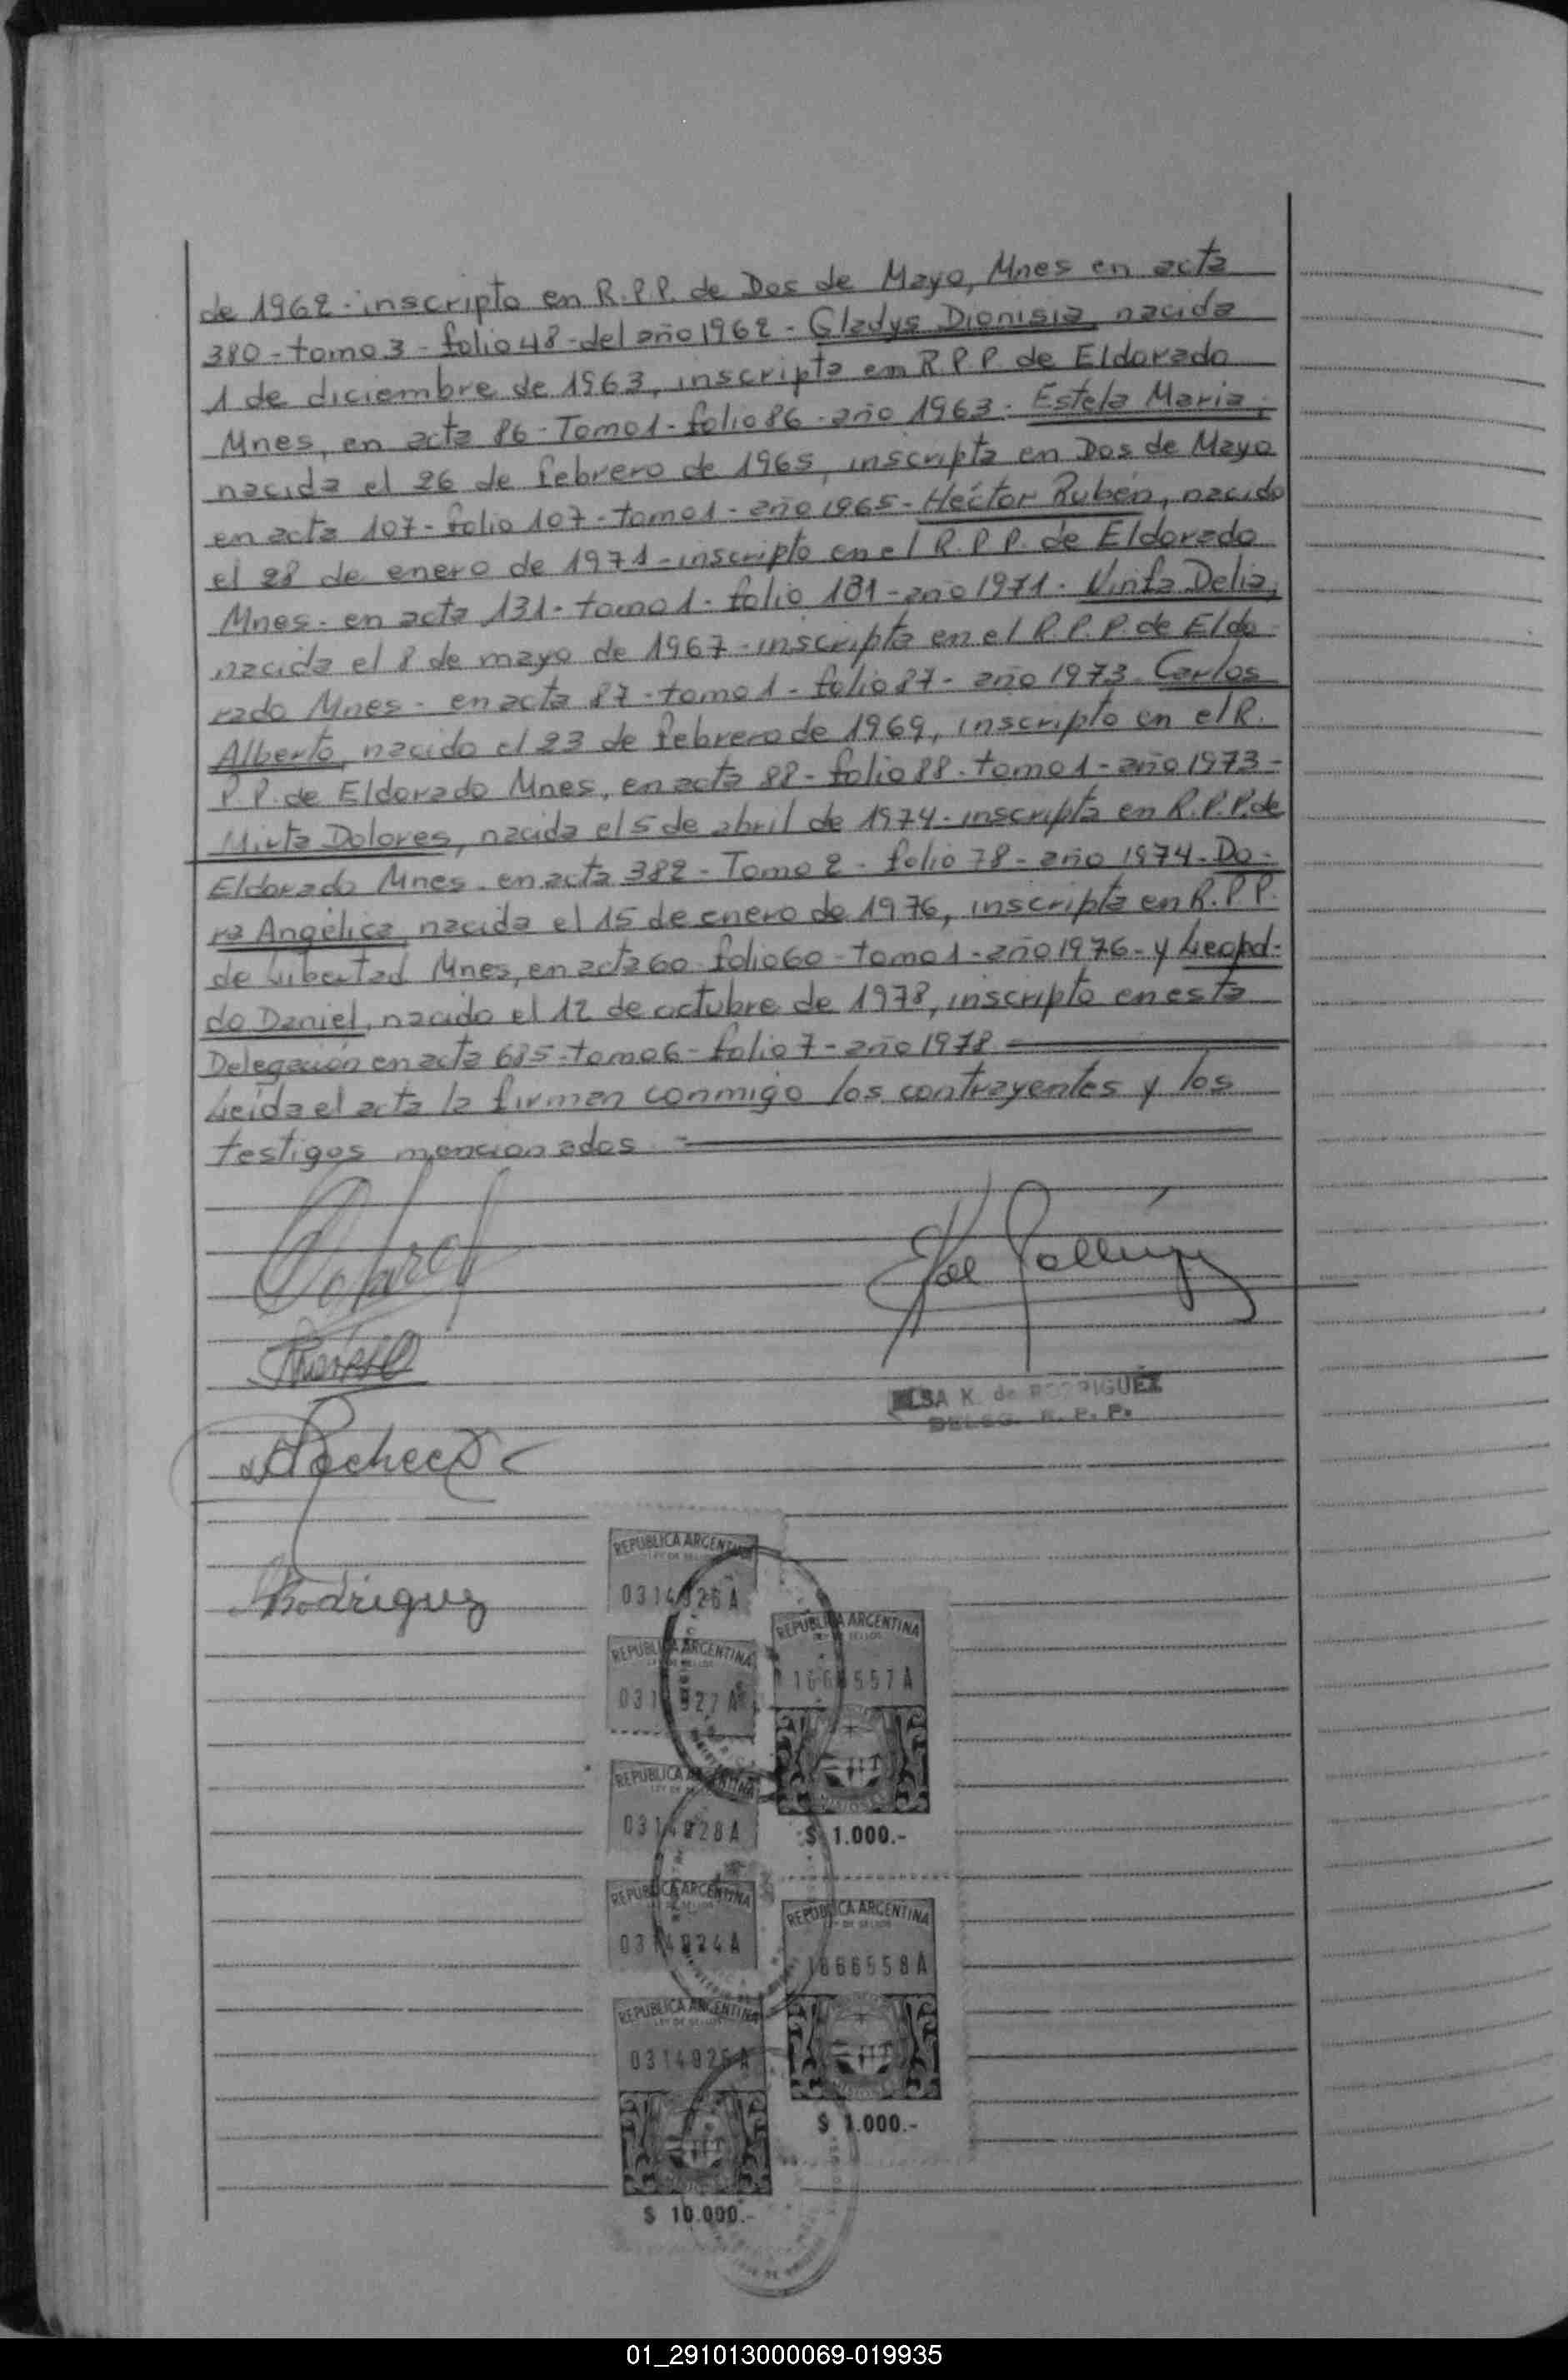 de 1962 - inscripto en R.P.P. de Dos de Mayo, Mnes en acta
380 - tomo 3 - folio 48 - del año 1962 - Gladys Dionisia, nacida
1 de diciembre de 1963, inscripta en R.P.P. de Eldorado
Mnes, en acta 86 - Tomo 1 - folio 86 - año 1963. Estela Maria,
nacida el 26 de febrero de 1965, inscripta en Dos de Mayo
en acta 107 - folio 107 - tomo 1 - año 1965 - Héctor Rubén, nacido
el 28 de enero de 1971 - inscripto en el R.P.P. de Eldorado
Mnes - en acta 131 - tomo 1 - folio 131 - año 1971 - Ninfa Delia,
nacida el 8 de mayo de 1967 - inscripta en el R.P.P. de Eldo
rado Mnes - en acta 87 - tomo 1 - folio 87 - año 1973 - Carlos
Alberto, nacido el 23 de febrero de 1969, inscripto en el R.
P.P. de Eldorado Mnes, en acta 88 - folio 88 - tomo 1 - año 1973 -
Mirta Dolores, nacida el 5 de abril de 1974 - inscripta en R.P.P. de
Eldorado Mnes - en acta 382 - Tomo 2 - folio 78 - año 1974 - Do-
ra Angélica, nacida el 15 de enero de 1976, inscripta en R.P.P.
de Libertad Mnes, en acta 60 - folio 60 - tomo 1 - año 1976 - y Leopol-
do Daniel, nacido el 12 de octubre de 1978, inscripto en esta
Delegación en acta 685 - tomo 6 - folio 7 - año 1978
Leída el acta la firman conmigo los contrayentes y los
testigos mencionados
ELSA K. de RODRIGUEZ
DELEG. R. P. P.
Pacheco
Rodriguez
REPUBLICA ARGENTINA
LEY DE SELLOS
0314926 A
REPUBLICA ARGENTINA
LEY DE SELLOS
1666557 A
$ 1.000.-
REPUBLICA ARGENTINA
LEY DE SELLOS
0314927 A
REPUBLICA ARGENTINA
LEY DE SELLOS
0314928 A
REPUBLICA ARGENTINA
LEY DE SELLOS
0314924 A
REPUBLICA ARGENTINA
LEY DE SELLOS
1666558 A
$ 1.000.-
REPUBLICA ARGENTINA
LEY DE SELLOS
0314925 A
$ 10.000.-
01_291013000069-019935